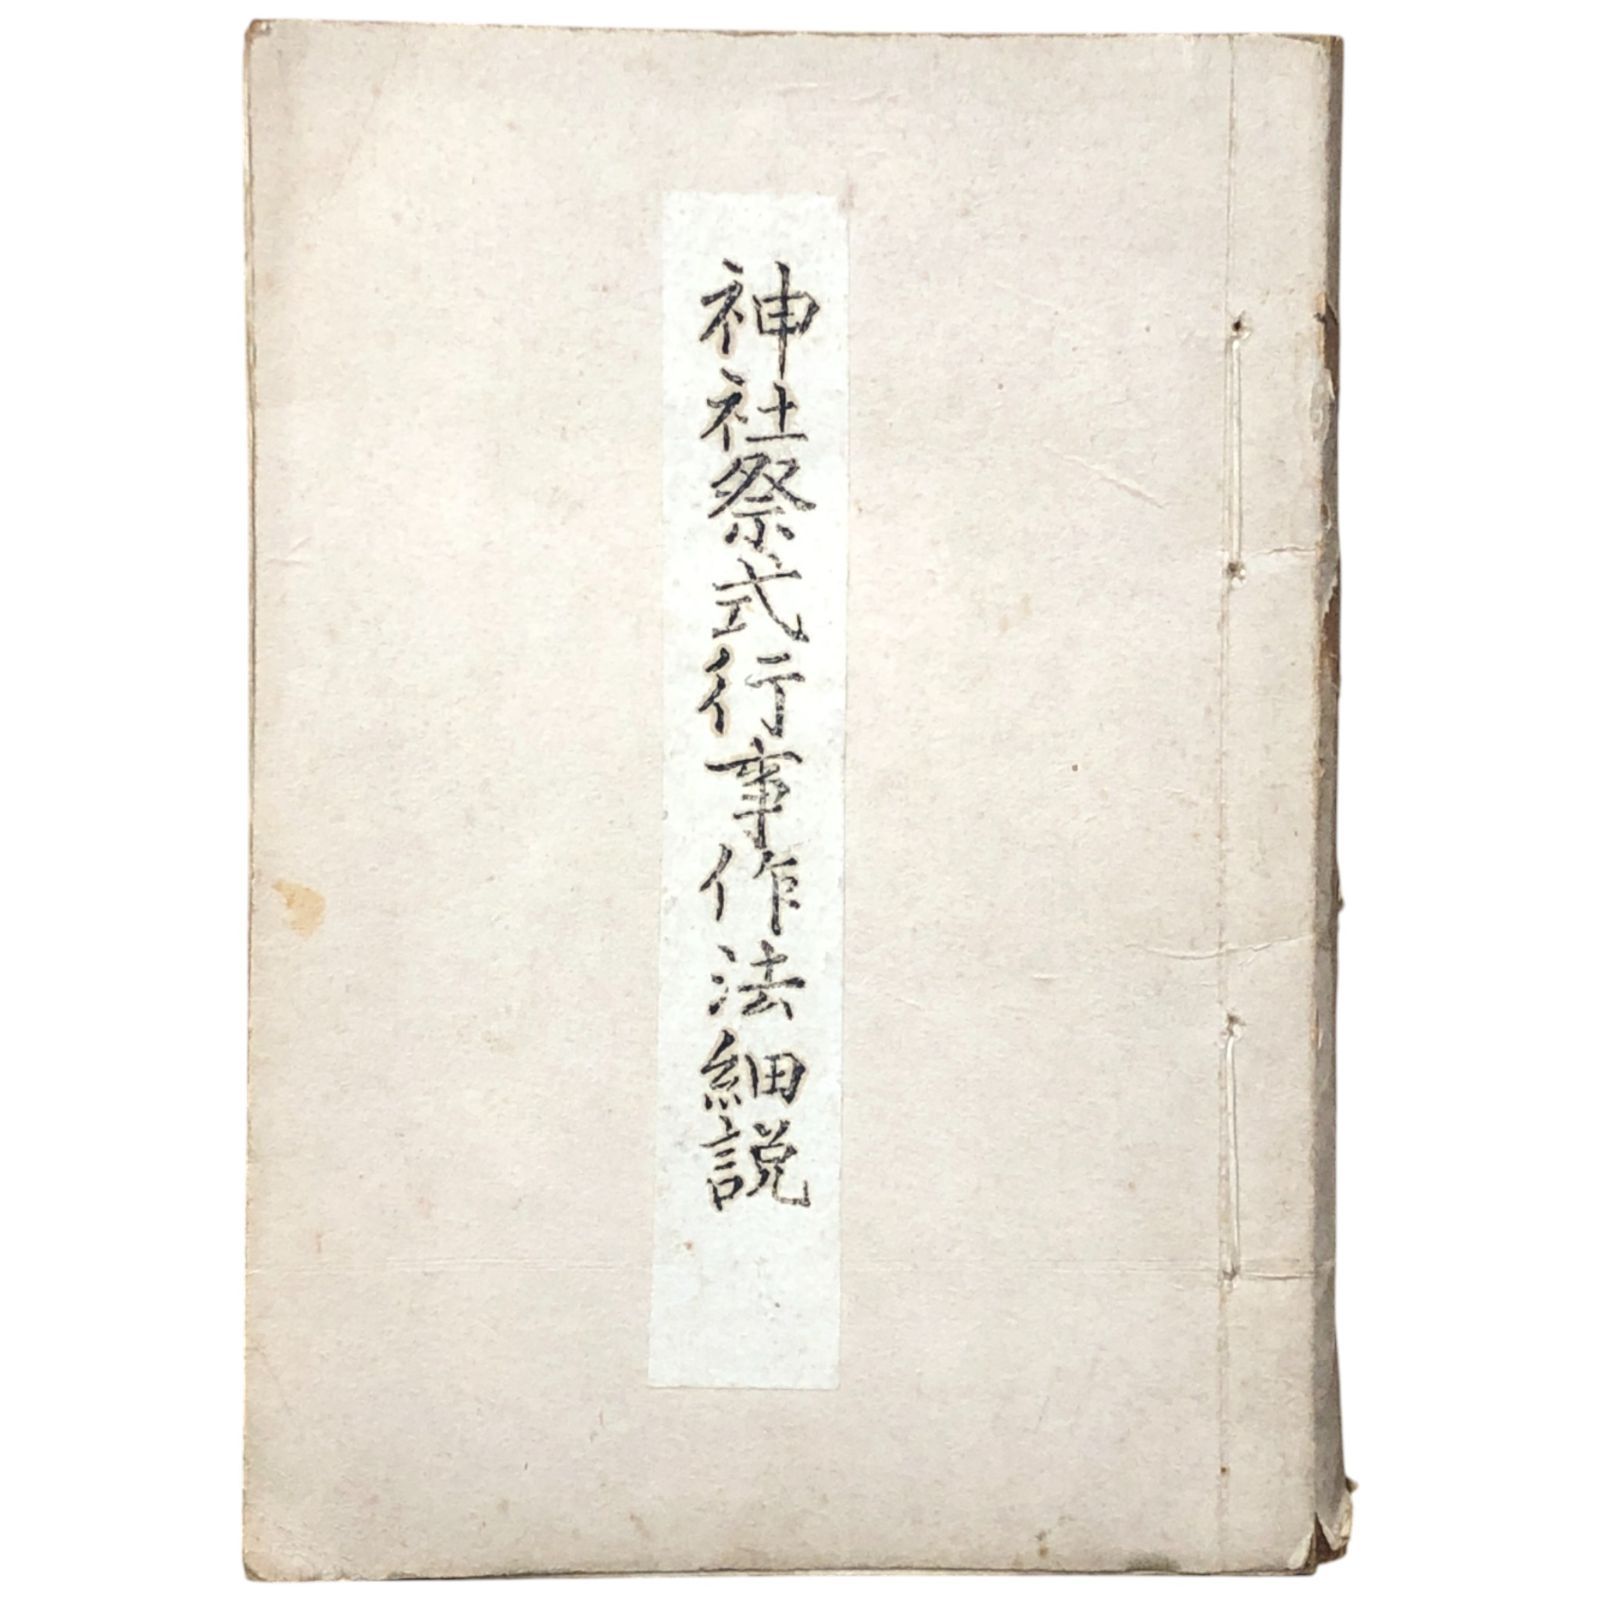 神社祭式行事作法細説